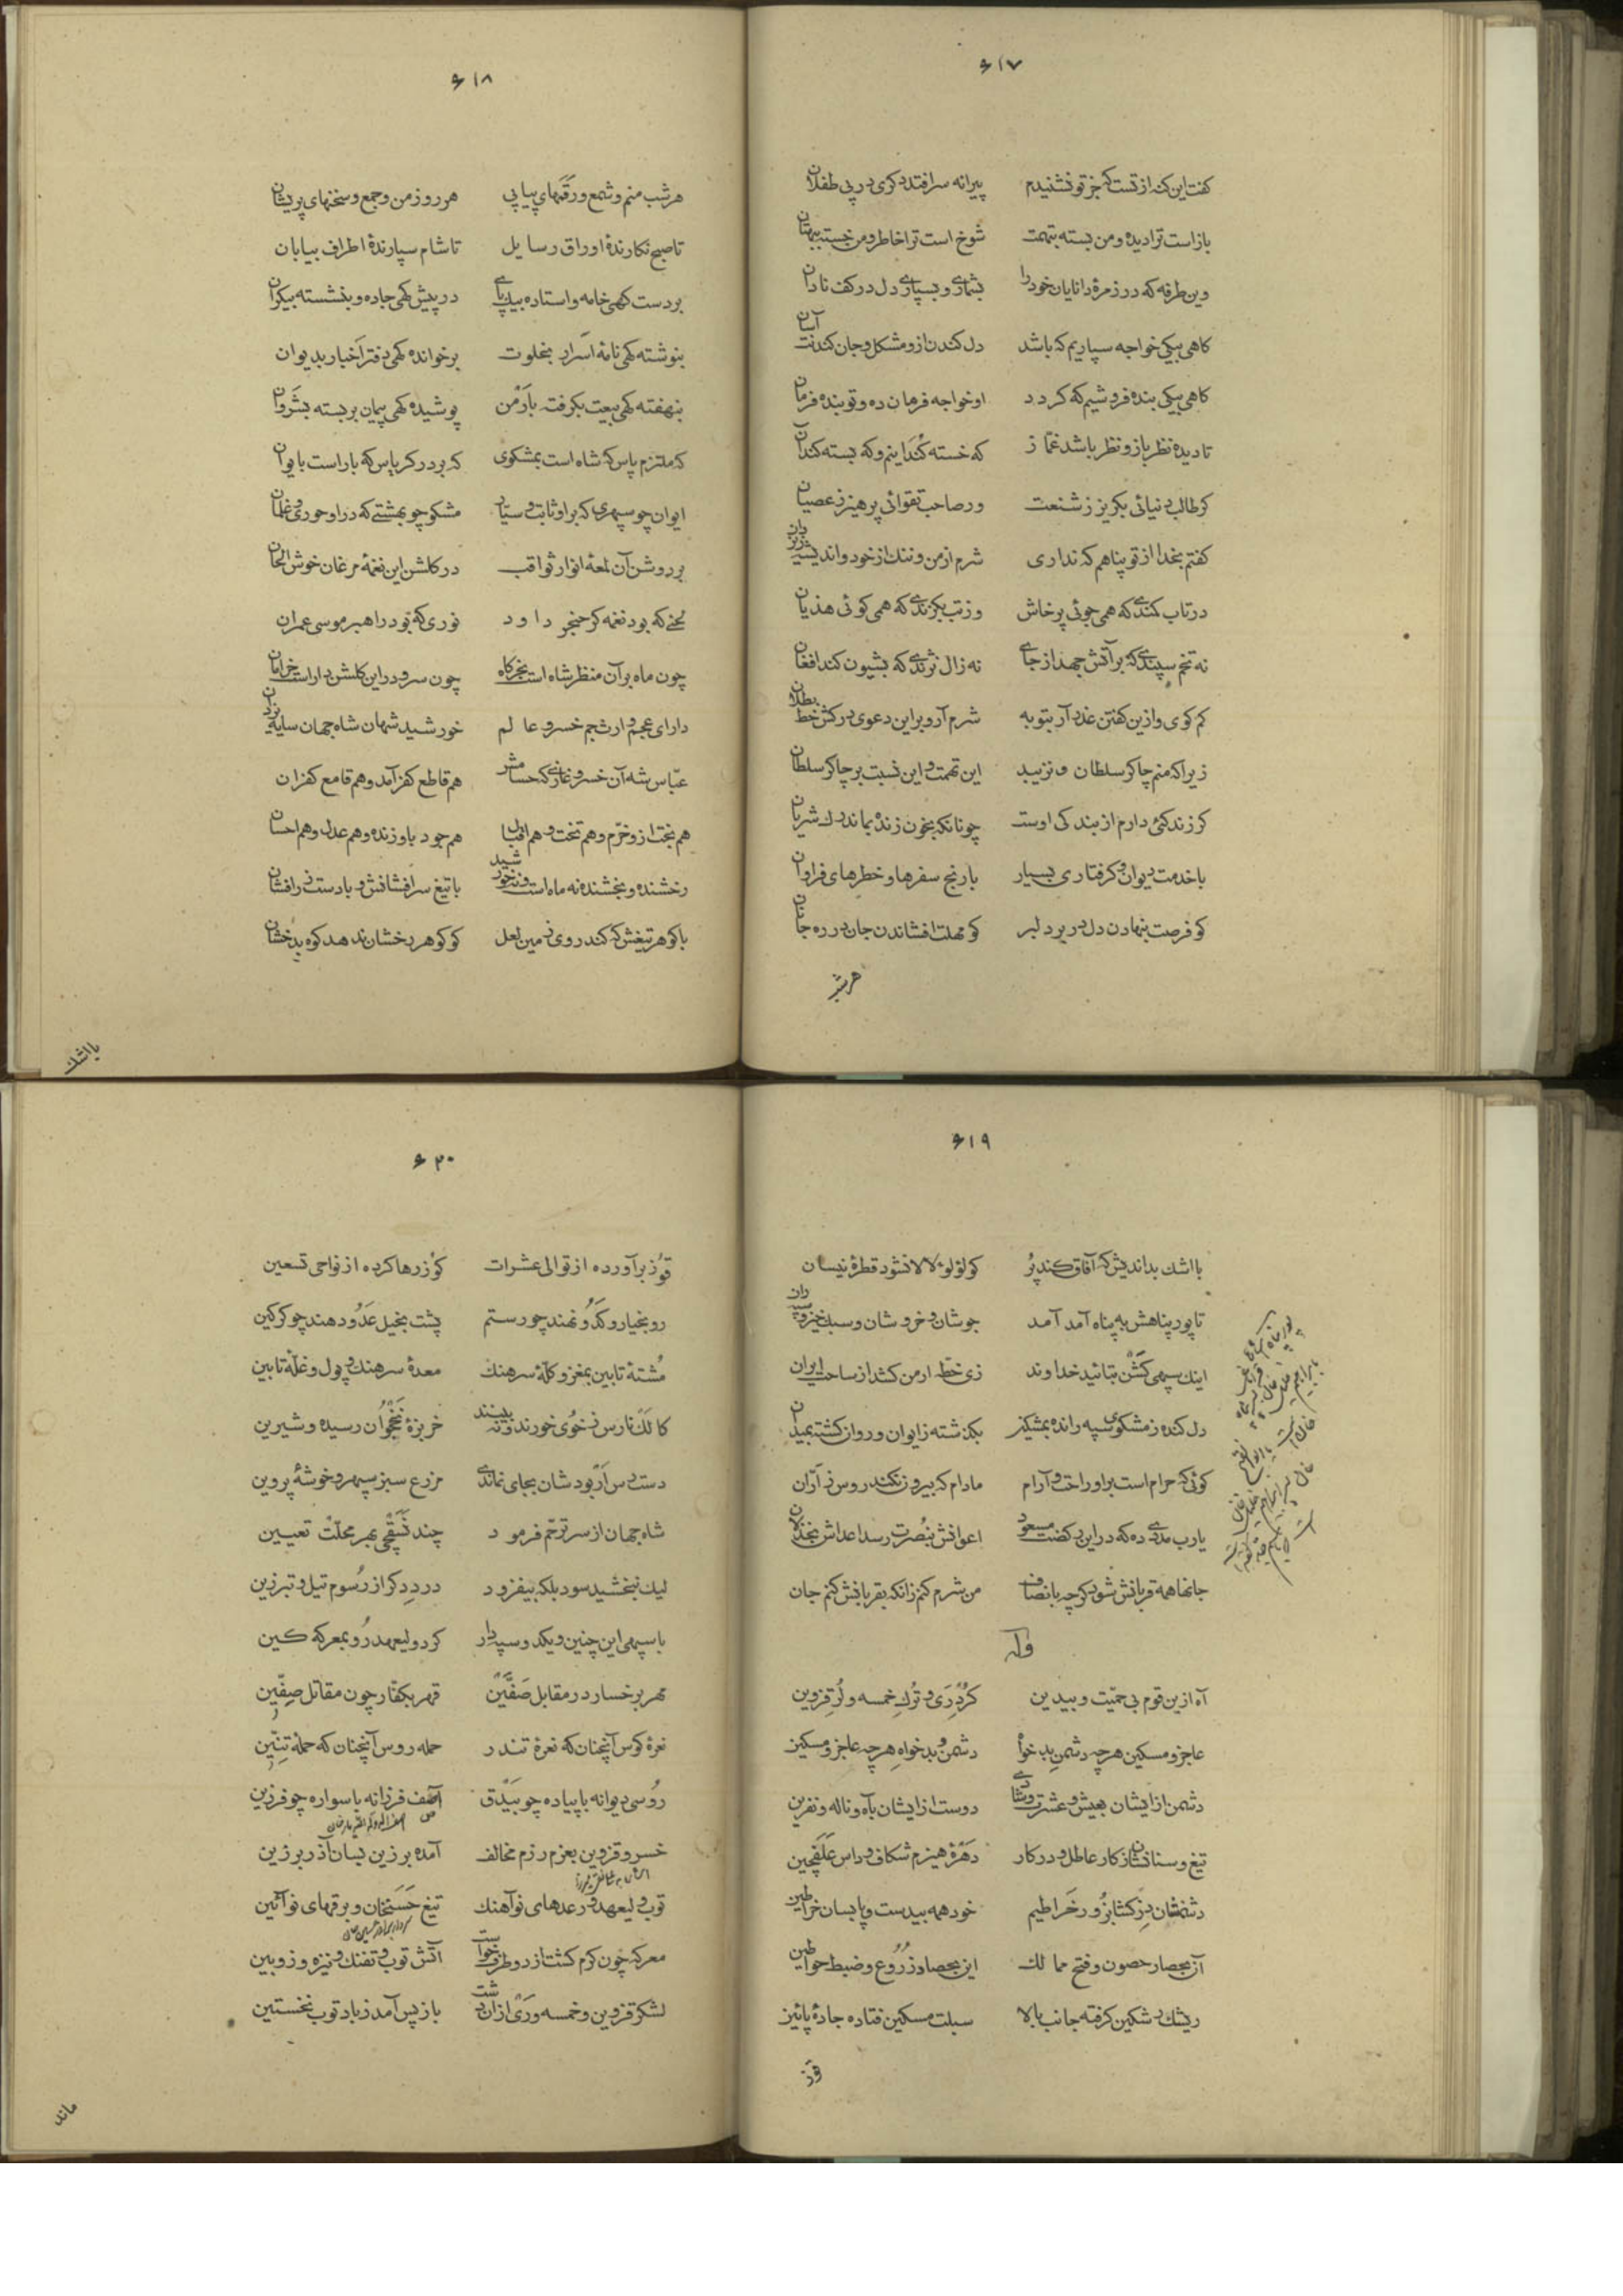 ۶۱۷
کفت این کنه از تست که جز تو نشنیدم پیرانه سر افتد دکری در پی طفلان
باز است ترا دیده و من بسته بتهمت شوخ است ترا خاطر و من خسته ببهتان
وین طرفه که در زمرهٔ دانایان خود را بشماری و بسپاری دل در کف نادان
کاهی بیکی خواجه سپاریم که باشد دل کندن ازو مشکل و جان کندنت آسان
کاهی بیکی بنده فروشیم که کردد او خواجه فرمان ده و تو بنده فرمان
تا دیده نظر باز و نظر باشد غمّاز که خسته کند اینم و که بسته کند آن
کر طالب دنیائی بکریز ز شنعت ور صاحب تقوائی پرهیز ز عصیان
کفتم بخدا از تو پناهم که نداری شرم از من و ننک از خود و اندیشه ز یزدان
در تاب کندی که همی جوئی پرخاش وز تب بکزندی که همی کوئی هذیان
نه تخم سپندی که بر آتش جهد از جای نه زال نژندی که بشیون کند افغان
کم کوی و ازین کفتن عذر آر بتوبه شرم آر و بر این دعوی در کش خط بطلان
زیرا که منم چاکر سلطان و نزیبد این تهمت و این نسبت بر چاکر سلطان
کر زندکئی دارم از بندکی اوست چونانکه بخون زنده بماند رک شریان
با خدمت دیوان و کرفتاری بسیار با رنج سفرها و خطرهای فراوان
کو فرصت بنهادن دل در بر دلبر کو مهلت افشاندن جان در ره جانان
هر شب
۶۱۸
هر شب منم و شمع و رقمهای پیاپی هر روز من و جمع و سخنهای پریشان
تا صبح نکارندهٔ اوراق رسایل تا شام سپارندهٔ اطراف بیابان
بر دست کهی خامه و استاده بیک پای در پیش کهی جاده و بنشسته بیکران
بنوشته کهی نامهٔ اسرار بخلوت برخوانده کهی دفتر اخبار بدیوان
بنهفته کهی بیعت بکرفته بارمن پوشیده کهی پیمان بربسته بشروان
که ملتزم پاس که شاه است بمشکوی که بر در کریاس که بار است بایوان
ایوان چو سپهری که بر او ثابت و سیّار مشکو چو بهشتی که در او حوری و غلمان
بر روشن آن لمعهٔ انوار ثواقب در کلشن این نغمهٔ مرغان خوش الحان
لحنی که بود نغمه کر حنجر داود نوری که بود راهبر موسی عمران
چون ماه بر آن منظر شاه است بخرکاه چون سرو در این کلشن داراست خرامان
دارای عجم وارث جم خسرو عالم خورشید شهان شاه جهان سایه یزدان
عبّاس شه آن خسرو غازی که حسامش هم قاطع کفر آمد و هم قامع کفران
هم بخت ازو خرّم و هم تخت و هم اقبال هم جود باو زنده و هم عدل و هم احسان
رخشنده و بخشنده نه ماه است و نه خورشید با تیغ سرافشانش و با دست زرافشان
با کوهر تیغش که کند روی زمین لعل کو کوهر رخشان ندهد کوه بدخشان
با اشک
۶۱۹
با اشک بداندیش که آفاق کند پُر کو لؤلوء لالا نشود قطرهٔ نیسان
تا پور پناهش به پناه آمد آمد جوشان و خروشان و سبک خیز و سپهران
اینک سپهی کشن بتائید خداوند زی خطّهٔ ارمن کشد از ساحت ایران
دل کنده ز مشکوی سپه رانده بمشکین بکذشته ز ایوان و روان کشته بمیدان
کوئی که حرام است بر او راحت و آرام مادام که بیرون نکند روس ز آرّان
یارب مددی ده که در این رکضت مسعود اعوانش بنصرت رسد اعداش بخذلان
جانها همه قربانش شود کر چه بانصاف من شرم کنم زانکه بقربانش کنم جان
وله
آه از ین قوم بی حمیّت و بیدین کُردِ رَی و تُرکِ خمسه و لُرِ قزوین
عاجز و مسکین هر چه دشمنِ بدخواه دشمن و بدخواهِ هر چه عاجز و مسکین
دشمن از ایشان بعیش و عشرت و شادی دوست از ایشان بآه و ناله و نفرین
تیغ و سنانشان ز کار عاطل و در کار دهرهٔ هیزم شکاف و داس علفچین
دشمنشان دِزکشا بزُور خراطیم خود همه بیدست و پا بسان خراطین
آن بحصار حصون و فتح ممالک این بحصاد زُرُوع و ضبط خواطین
ریشک مشکین کرفته جانب بالا سبلت مسکین فتاده جادهٔ پائین
قوز
۶۲۰
قوز برآورده از توالی عشرات کوزرها کرده از نواحی تسعین
رو بخیار و کدو نهند چو رستم پشت بخیل عَدُو دهند چو کرکین
مُشتهٔ تابین بمغز و کلّهٔ سرهنک معدهٔ سرهنک و پول و غلّهٔ تابین
کالک نارس ز خوی خورند و نه بینند خربزهٔ نخجوان رسیده و شیرین
دست رس ار بودشان بجای نماندی مزرع سبز سپهر و خوشهٔ پروین
شاه جهان از سر ترحّم فرمود چند نَسَقچی بهر محلّت تعیین
لیک نبخشید سود بلکه بیفزود درد دکر از رُسوم تیل و تبرزین
با سپهی این چنین و یکدو سپهدار کرد ولیعهد رُو بمعرکه کین
مهر برخسار در مقابل صَفّین قهر بکفّار چون مقاتل صِفّین
نعرهٔ کوس آنچنان که نعرهٔ تندر حمله روس آنچنان که حملهٔ تنّین
رُوسی دیوانه با پیاده چو بیدق آصف فرزانه با سواره چو فرزین
خسرو قزوین بعزم رزم مخالف آمده بر زین بسان آذر برزین
توپ ولیعهد و رعدهای نوآهنک تیغ حسنخان و برقهای نوآئین
معرکه چون کرم کشت از دو طرف خواست آتش توپ و تفنک و نیزه و زوبین
لشکر قزوین و خمسه و رَی از ان دشت باز پس آمد ز باد توپ نخستین
ماند